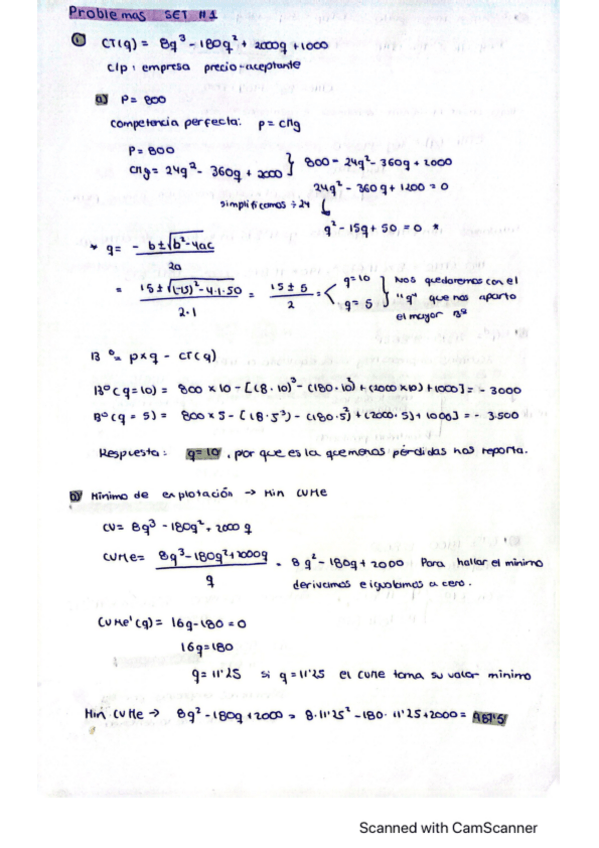 Problemas SET #1
① CT(q) = 8q³ - 180q² + 2000q + 1000
c/p: empresa precio-aceptante
a) P = 800
competencia perfecta: p = cMg
P = 800
cMg = 24q² - 360q + 2000 } 800 = 24q² - 360q + 2000
24q² - 360q + 1200 = 0
simplificamos ÷ 24
q² - 15q + 50 = 0 *
* q = - b ± √b² - 4ac / 2a
= 15 ± √(-15)² - 4·1·50 / 2·1 = 15 ± 5 / 2 = < q = 10 q = 5 } Nos quedaremos con el "q" que nos aporto el mayor Bº
Bº = p×q - CT(q)
Bº(q=10) = 800 × 10 - [(8·10)³ - (180·10²) + (2000×10) + 1000] = - 3000
Bº(q = 5) = 800 × 5 - [(8·5³) - (180·5²) + (2000·5) + 1000] = - 3.500
Respuesta: q = 10, por que es la que menos pérdidas nos reporta.
b) Mínimo de explotación → Min CVMe
CV = 8q³ - 180q² + 2000q
CVMe = 8q³ - 180q² + 2000q / q = 8q² - 180q + 2000 Para hallar el mínimo
derivamos e igualamos a cero.
CVMe'(q) = 16q - 180 = 0
16q = 180
q = 11'25 si q = 11'25 el CVMe toma su valor mínimo
Min CVMe → 8q² - 180q + 2000 = 8·11'25² - 180·11'25 + 2000 =
Scanned with CamScanner